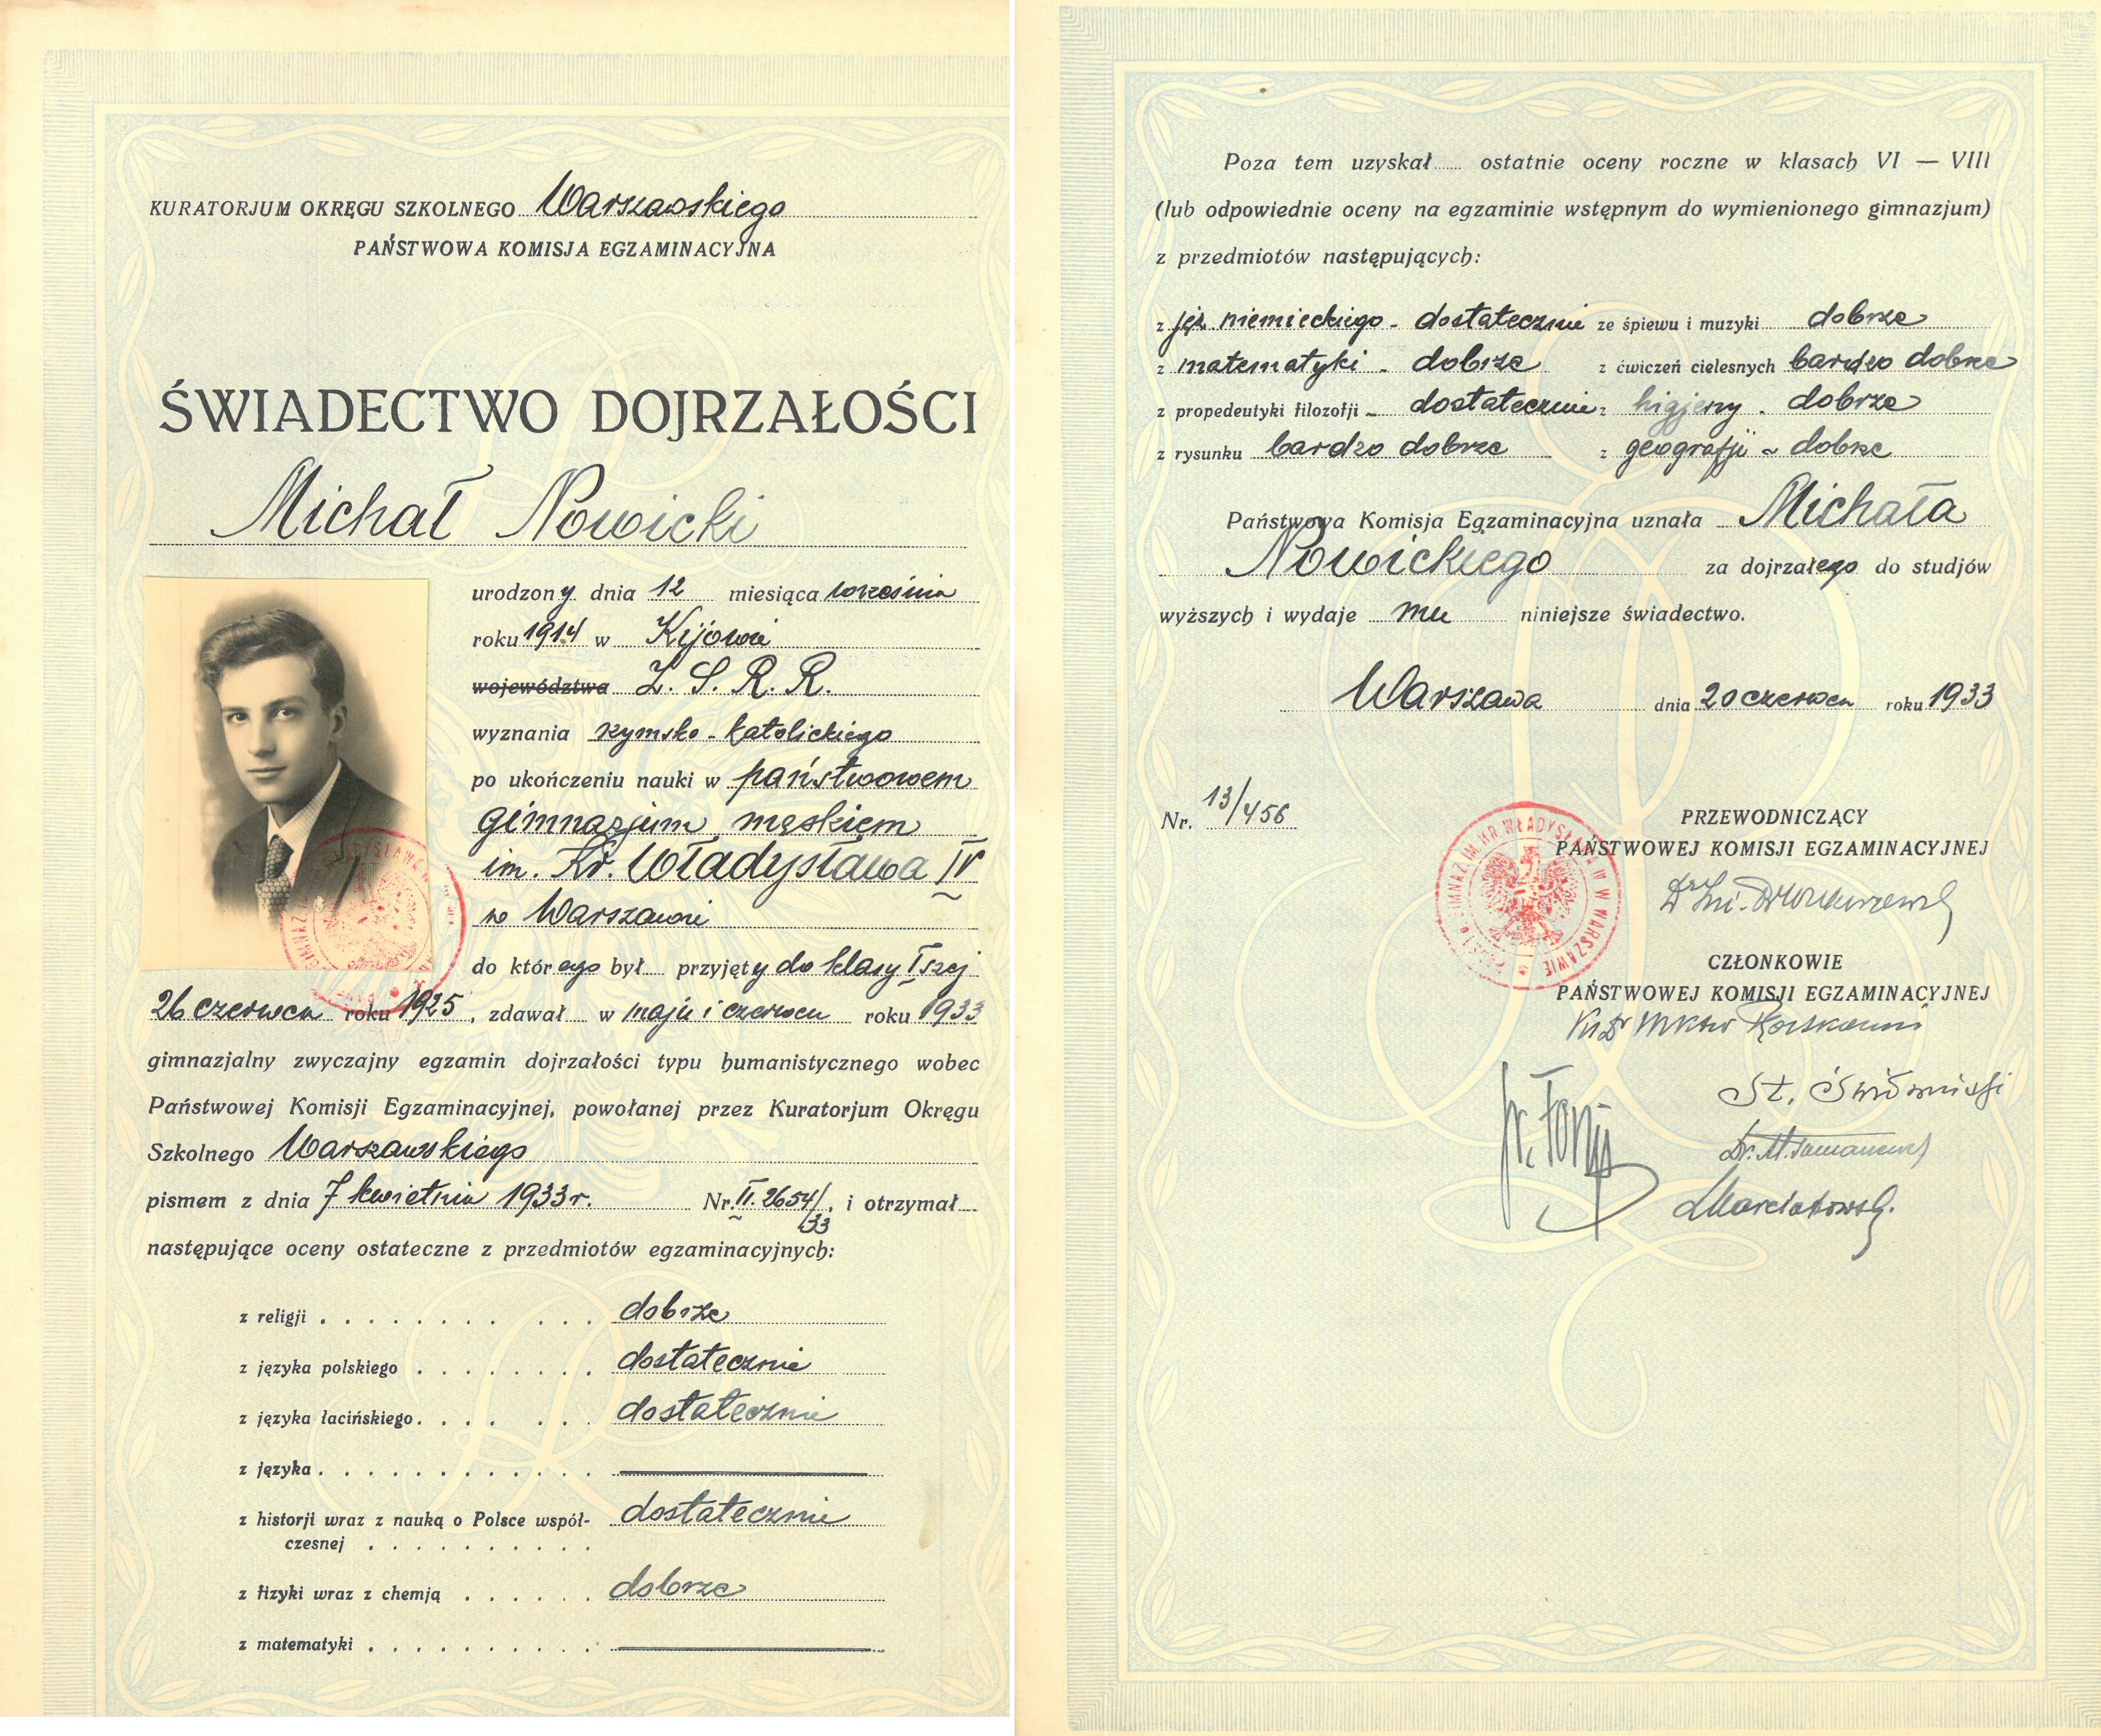 KURATORJUM OKRĘGU SZKOLNEGO Warszawskiego
PAŃSTWOWA KOMISJA EGZAMINACYJNA
ŚWIADECTWO DOJRZAŁOŚCI
Michał Nowicki
urodzony dnia 12 miesiąca września
roku 1914 w Kijowie
województwa Z. S. R. R.
wyznania rzymsko-katolickiego
po ukończeniu nauki w państwowem
gimnazjum męskiem
im. Kr. Władysława IV
w Warszawie
do którego był przyjęty do klasy I szej
26 czerwca roku 1925, zdawał w maju i czerwcu roku 1933
gimnazjalny zwyczajny egzamin dojrzałości typu humanistycznego wobec
Państwowej Komisji Egzaminacyjnej, powołanej przez Kuratorjum Okręgu
Szkolnego Warszawskiego
pismem z dnia 7 kwietnia 1933 r. Nr. II. 2654/33, i otrzymał
następujące oceny ostateczne z przedmiotów egzaminacyjnych:
z religji dobrze
z języka polskiego dostatecznie
z języka łacińskiego dostatecznie
z języka
z historji wraz z nauką o Polsce współ- dostatecznie
czesnej
z fizyki wraz z chemją dobrze
z matematyki
Poza tem uzyskał ostatnie oceny roczne w klasach VI — VIII
(lub odpowiednie oceny na egzaminie wstępnym do wymienionego gimnazjum)
z przedmiotów następujących:
z jęz. niemieckiego - dostatecznie ze śpiewu i muzyki dobrze
z matematyki - dobrze z ćwiczeń cielesnych bardzo dobrze
z propedeutyki filozofji - dostatecznie z higjeny - dobrze
z rysunku bardzo dobrze z geografji - dobrze
Państwowa Komisja Egzaminacyjna uznała Michała
Nowickiego za dojrzałego do studjów
wyższych i wydaje mu niniejsze świadectwo.
Warszawa dnia 20 czerwca roku 1933
Nr. 13/456
PRZEWODNICZĄCY
PAŃSTWOWEJ KOMISJI EGZAMINACYJNEJ
CZŁONKOWIE
PAŃSTWOWEJ KOMISJI EGZAMINACYJNEJ